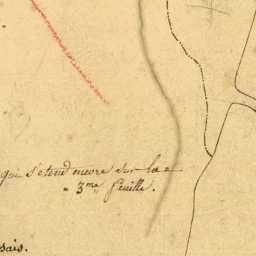 qui s'etend encore sur la
3me feuille.
sais.